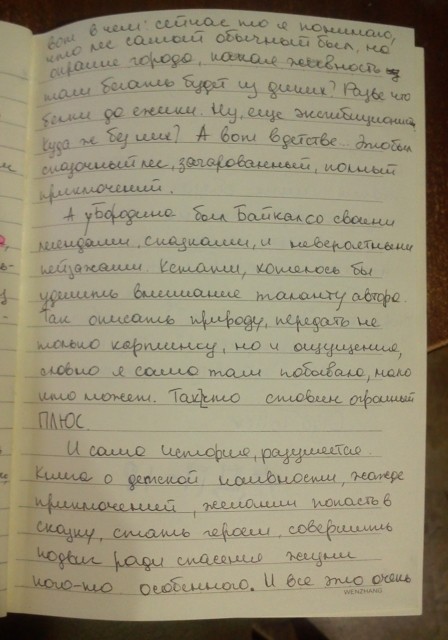 вот в чем: сейчас то я понимаю,
что лес самый обычный был, но
окраине города, какая живность
там бегать будет из диких? Разве что
белки до ежики. Ну, еще эксгибиционист,
куда ж без них? А вот в детстве... Это был
сказочный лес, зачарованный, полный
приключений.
А у Бородина был Байкал со своими
легендами, сказками, и невероятными
пейзажами. Кстати, хотелось бы
уделить внимание таланту автора.
Так описать природу, передать не
только картинку, но и ощущение,
словно я сама там побывала, мало
кто может. Так что ставим огромный
ПЛЮС.
И сама история, разумеется.
Книга о детской наивности, жажде
приключений, желании попасть в
сказку, стать героем, совершить
подвиг ради спасения жизни
кого-то особенного. И все это очень
WENZHANG